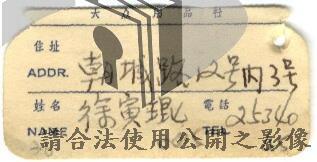 住址
ADDR. 朝城路12号内3号
姓名 徐寅琨 電話
NAME 25340
請合法使用公開之影像